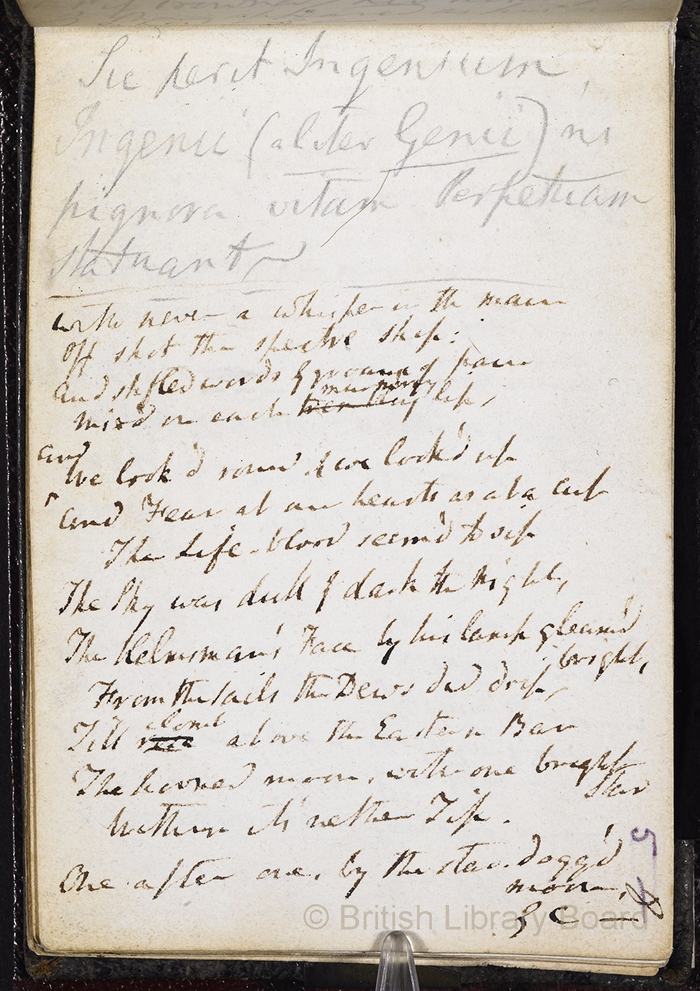 Sic perit Ingenium,
Ingenii (aliter Genii) ni
pignora vitam Perpetuam
statuant
with never a whisper in the main
Off shot the spectre ship:
and stifled words & groans of pain
murmuring
mix'd on each trembling lip,
And
We look'd round & we look'd up
and Fear at our hearts as at a cup
The Life-blood seem'd to sip
The Sky was dull & dark the Night,
The Helmsman's Face by his lamp gleam'd
bright,
From the sails the Dews did drip,
clomb
Till rose above the Eastern Bar
The horned moon, with one bright
Star
Within its nether Tip.
One after one, by the star-dogg'd
moon,
&c —
5
© British Library Board